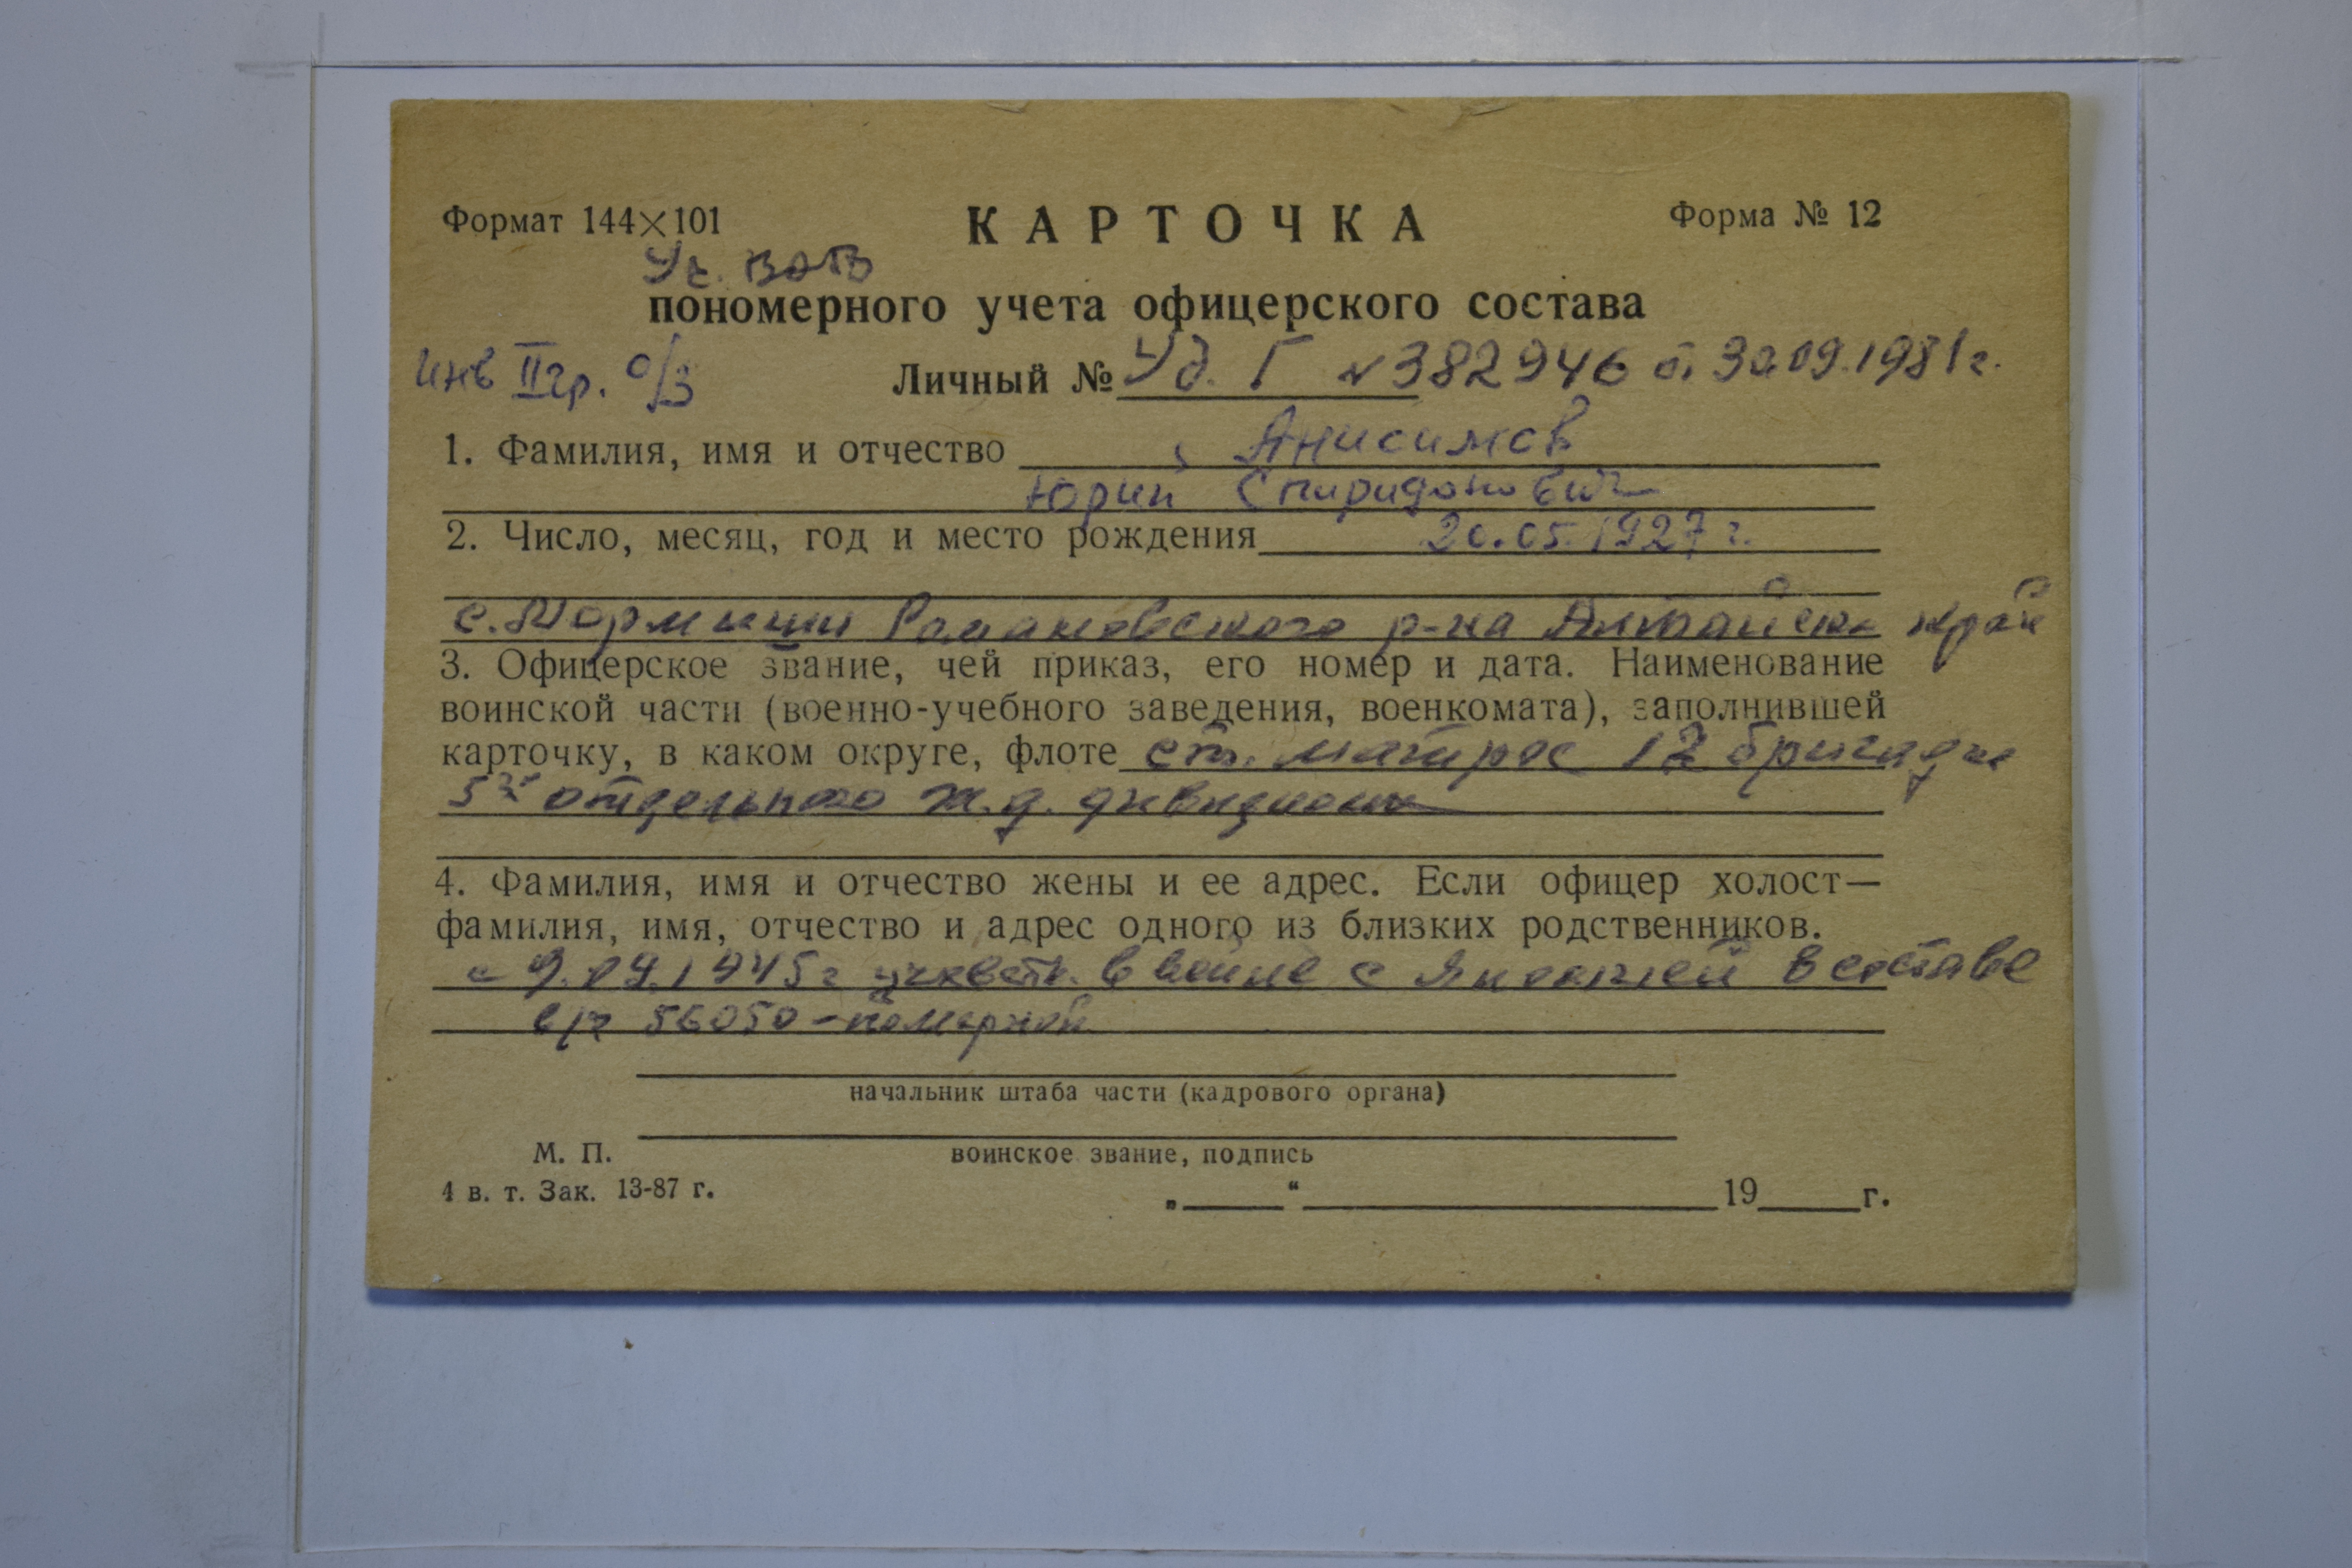 Формат 144×101 КАРТОЧКА Форма № 12
Уч. ВОВ
пономерного учета офицерского состава
инв II гр. о/з Личный № Уд. Г № 382946 от 30.09.1981 г.
1. Фамилия, имя и отчество Анисимов
Юрий Спиридонович
2. Число, месяц, год и место рождения 20.05.1927 г.
с. Мормыши Романовского р-на Алтайск. край
3. Офицерское звание, чей приказ, его номер и дата. Наименование
воинской части (военно-учебного заведения, военкомата), заполнившей
карточку, в каком округе, флоте ст. матрос 12 бригады
отдельного ж.д. дивизиона
4. Фамилия, имя и отчество жены и ее адрес. Если офицер холост—
фамилия, имя, отчество и адрес одного из близких родственников.
с 9.09.1945 г участв. в войне с Японией в составе
в/ч 56050 -
начальник штаба части (кадрового органа)
М. П. воинское звание, подпись
4 в. т. Зак. 13-87 г.
„ “ 19 г.